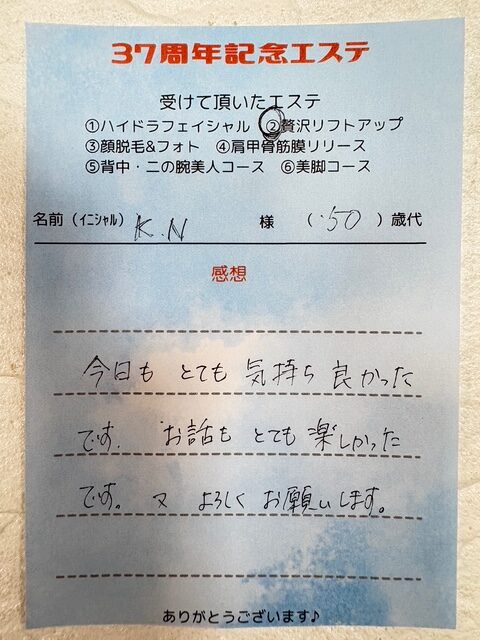 37周年記念エステ
受けて頂いたエステ
①ハイドラフェイシャル ②贅沢リフトアップ
③顔脱毛&フォト ④肩甲骨筋膜リリース
⑤背中・二の腕美人コース ⑥美脚コース
名前(イニシャル) K.N 様 ( 50 )歳代
感想
今日も とても 気持ち 良かった
です。 お話も とても 楽しかった
です。 又 よろしく お願いします。
ありがとうございます♪